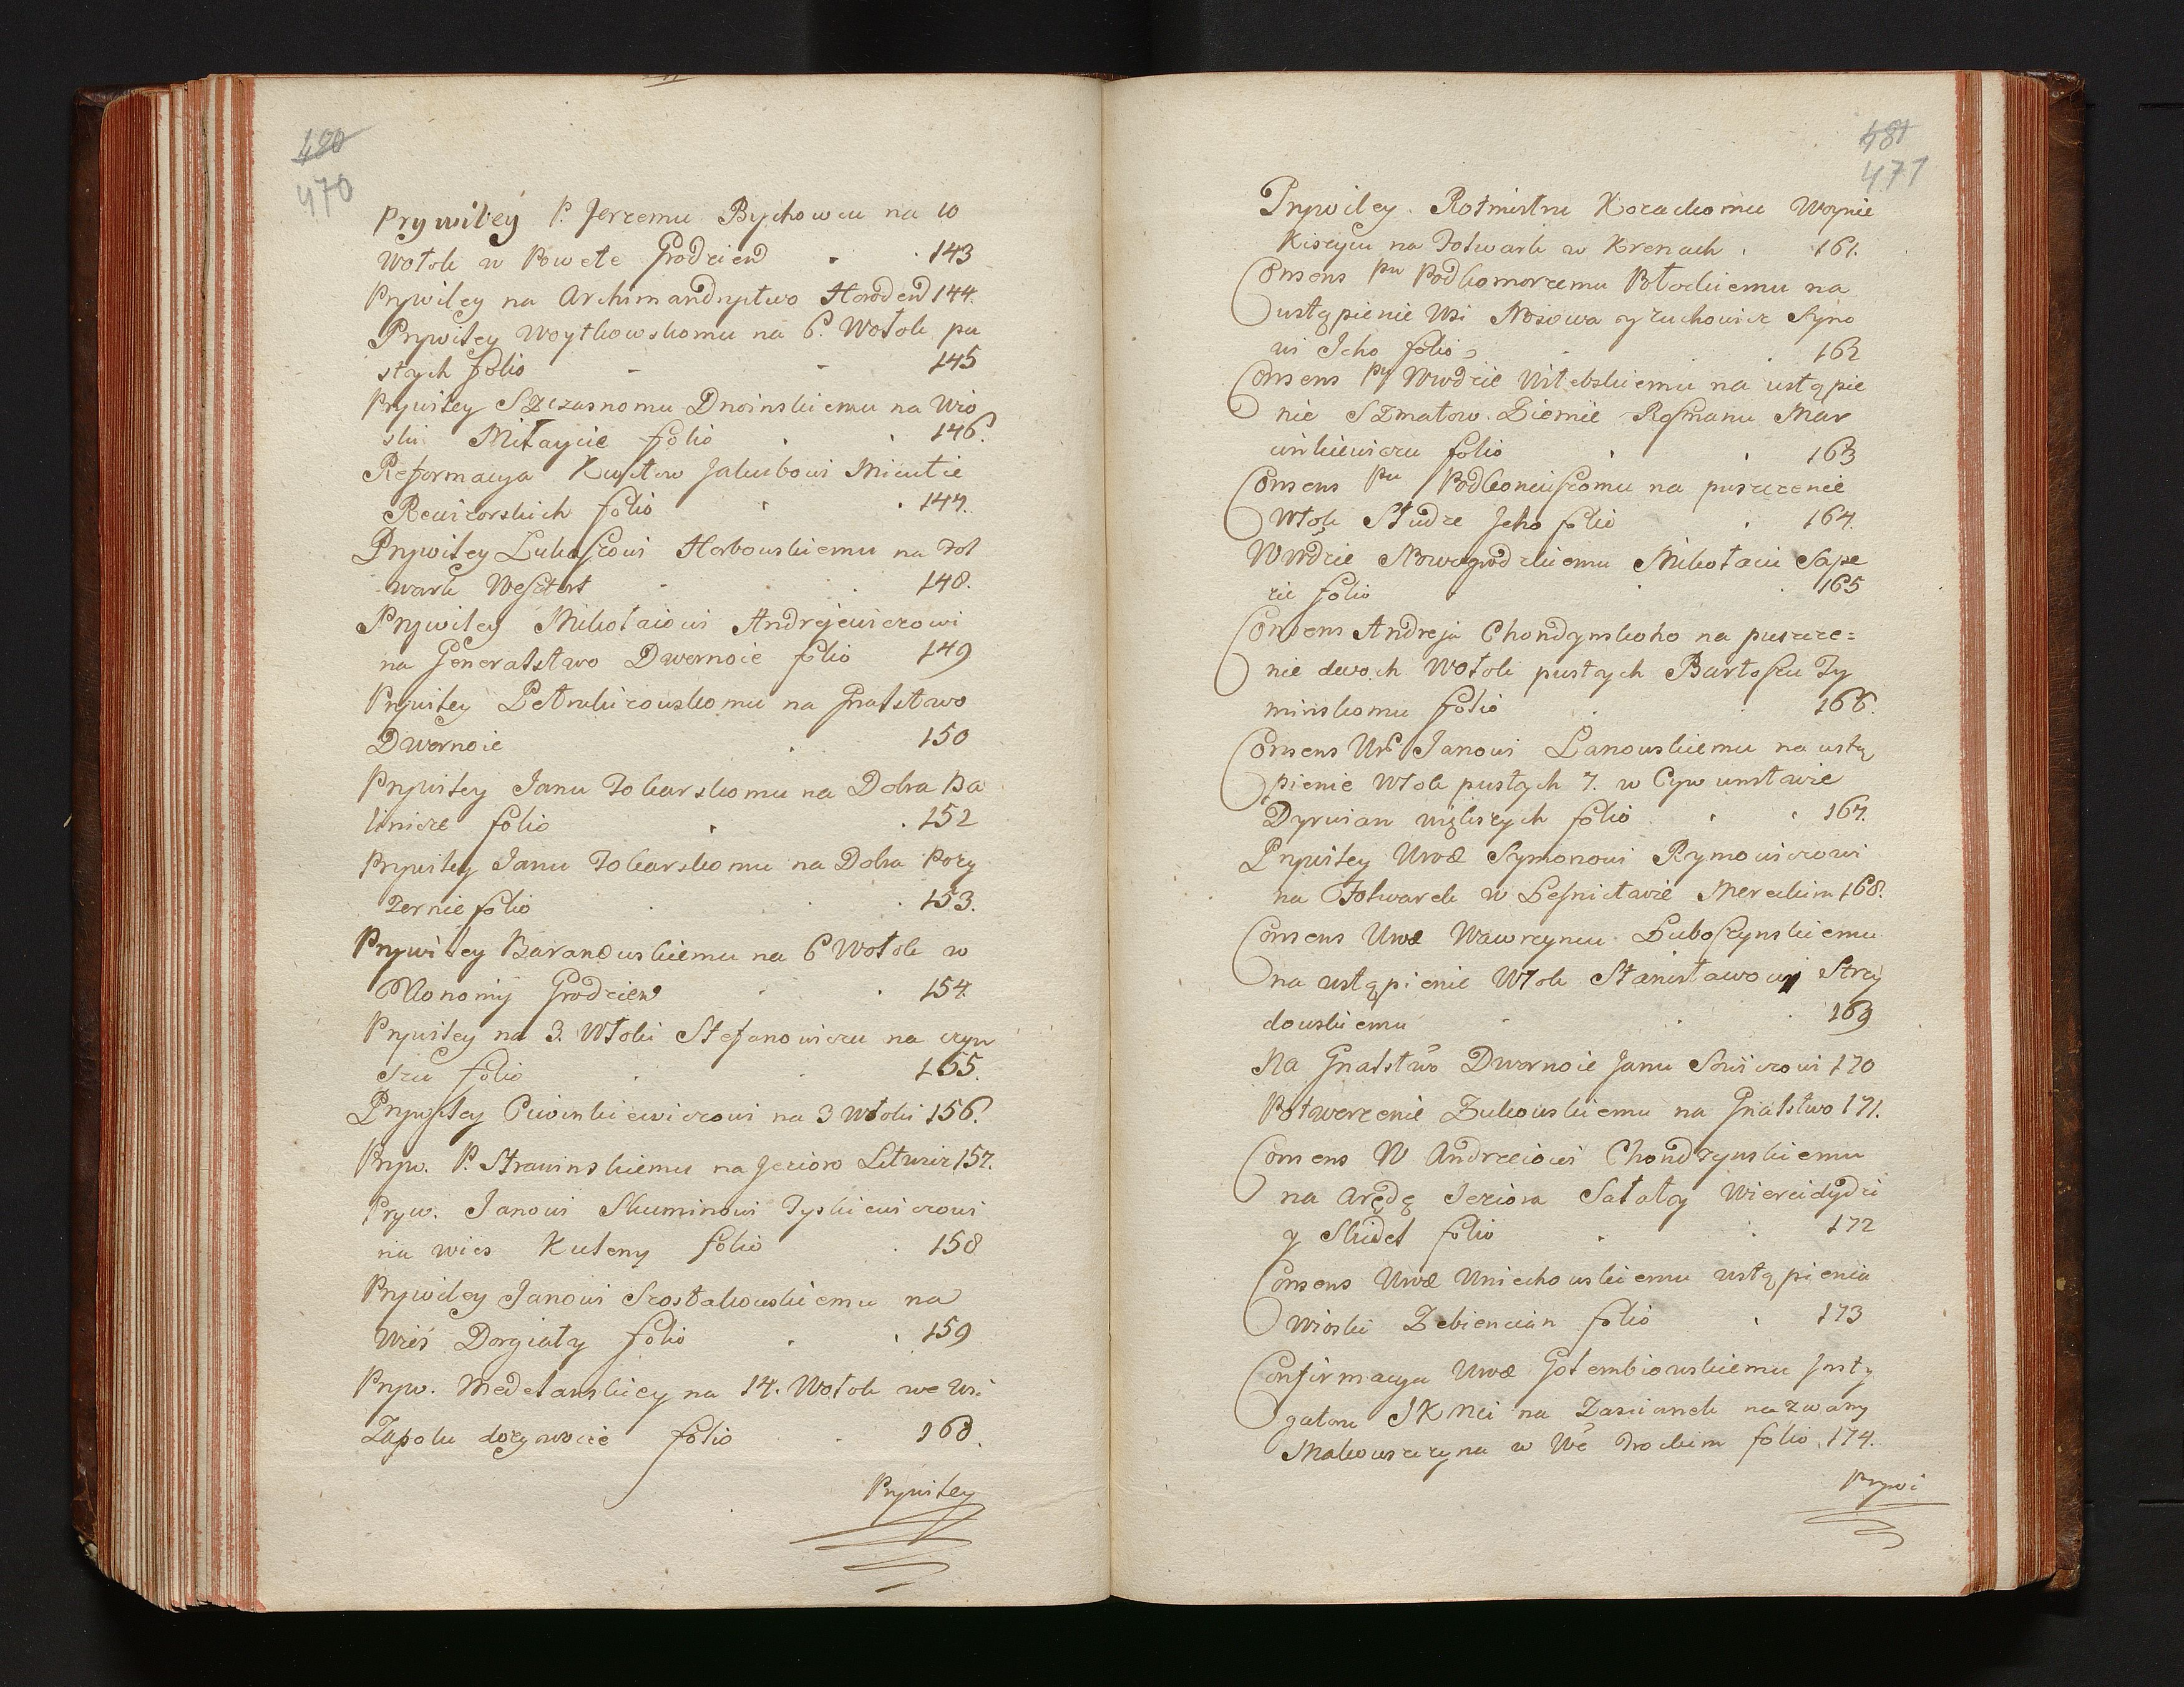 480
470
Prywiley P. Jerzemu Bychowcu na 10
Wołok w Powete Grodzień 143
Prywiley na Archimandryctwo Horoden 144.
Prywiley Woytkowskomu na 6. Wołok pu
stych folio 145
Prywiley Szczasnomu Dnoinskiemu na Wio
ski Miłaycie folio 146.
Reformacya Kwitow Jakubowi Micutie
Rewizorskich folio 147.
Prywiley Lukaszowi Horbowskiemu na Fol
wark 148.
Prywiley Mikołaiowi Andrejewiczowi
na Generalstwo Dwornoie folio 149
Prywiley Petrulizowskomu na Gnalstwo
Dwornoie 150
Prywiley Janu Tokarskomu na Dobra Ba
linicze folio 152
Prywiley Janu Tokarskomu na Dobra Pozy
zernie folio 153.
Prywiley Baranowskiemu na 6 Wołok w
Ekonomij Grodzien 154.
Prywiley na 3. Włoki Stefanowiczu na czyn
szu folio 155.
Prywiley Ciwinkiewiczowi na 3 Włoki 156.
Pryw. P. Strawinskiemu na Jezioro 157.
Pryw. Janowi Skuminowi Tyskiewiczowi
na wies Kuleny folio 158
Prywiley Janowi Szostakowskiemu na
Wies Dorgiały folio 159
Pryw. Medekanskiey na 14. Wołok we Wsi
Zapolu dożywocie folio 160.
Prywiley
481
471
Prywiley Rotmistru Kozackomu Woynie
Kiszycu na Folwark w Krenach 161.
Consens Pu Podkomorzemu Połockiemu na
ustąpienie Wsi Nosowa y Zuchowicz Syno
wi Jeho folio 162
Consens Pu Wwdzie Witebskiemu na ustąpie
nie Szmatow Ziemie Roszmanu Mar
cinkiewiczu folio 163
Consens Pu Podkoniuszomu na puszczenie
Włok Studze Jeho folio 164.
Wwdzie Nowogrodzkiemu Mikołaiu Sape
zie folio 165
Consens Andreja Chondzynskoho na puszcze=
nie dwoch Wołok pustych Bartoszu Ty
minskomu folio 166.
Consens Ur Janowi Lanowskiemu na ustą
pienie Włok pustych 7. w Cywunstwie
Dyrwian folio 167.
Prywiley Urod Symonowi Rymowiczowi
na Folwarck w Leśnictwie Mereckim 168.
Consens Urod Wawrzyncu Luboszynskiemu
na ustąpienie Włok Stanisławowi Strzy
dowskiemu 169
Na Gnalstwo Dwornoie Janu 170
Potwerzenie Zukowskiemu na Gnalstwo 171.
Consens W Andrzeiowi Chondzynskiemu
na Arędę Jeziora Sałaty Wiercidydzi
y Skudet folio 172
Consens Urod Uniechowskiemu ustąpienia
Wioski Zebiencian folio 173
Confirmacya Urod Gołembiowskiemu Jnsty
gatoru JKMci na Zascianek nazwany
Makowszczyzna w Wie Trockim folio 174.
Prywi